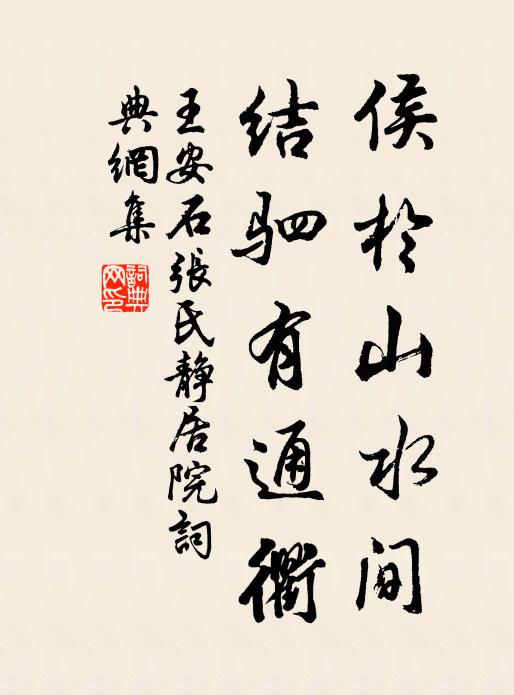 侯於山水间
结驷有通衢
王安石張氏静居院詞
典網集
詞典网印